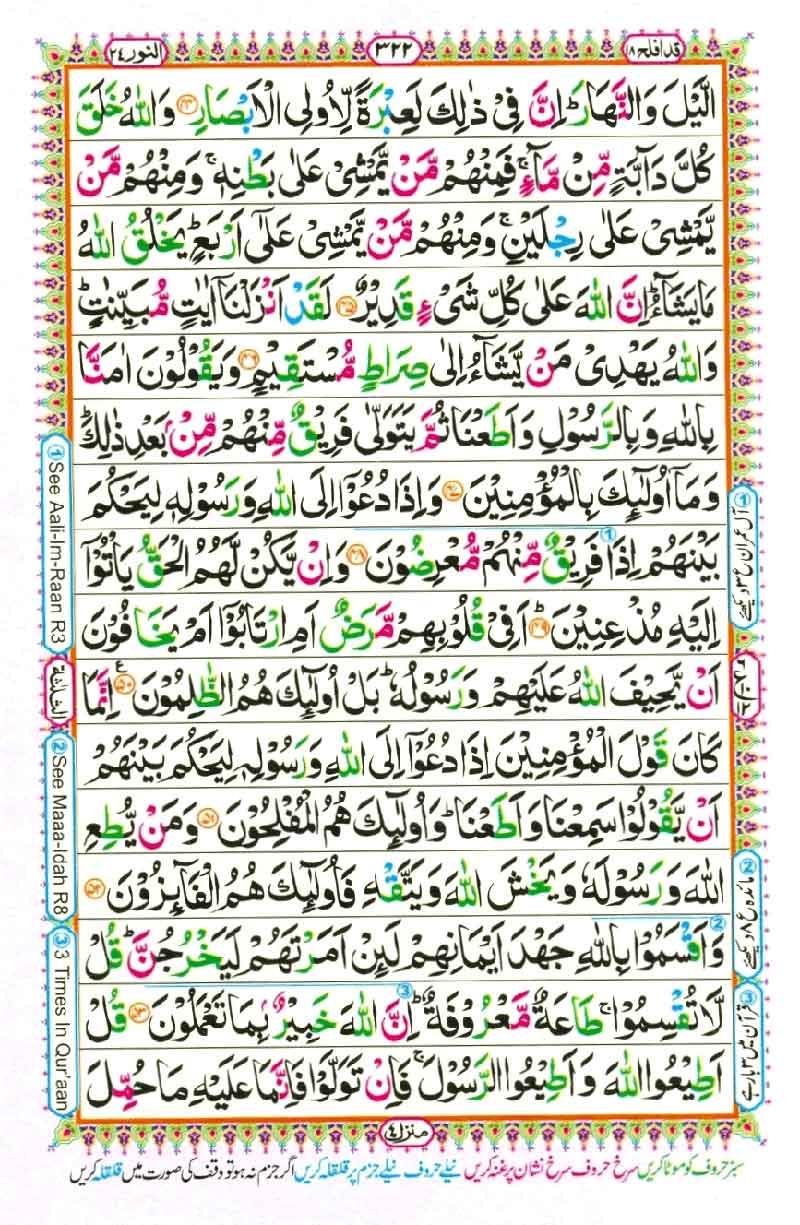 قد افلح ١٨
٣٢٢
النور ٢٤
الَّيۡلَ وَالنَّهَارَ‌ؕ اِنَّ فِىۡ ذٰ لِكَ لَعِبۡرَةً لِّاُولِى الۡاَبۡصَارِ ﴿۴۴﴾ وَاللّٰهُ خَلَقَ
كُلَّ دَآبَّةٍ مِّنۡ مَّآءٍ‌ۚ فَمِنۡهُمۡ مَّنۡ يَّمۡشِىۡ عَلٰى بَطۡنِهٖ‌ۚ وَمِنۡهُمۡ مَّنۡ
يَّمۡشِىۡ عَلٰى رِجۡلَيۡنِ‌ۚ وَمِنۡهُمۡ مَّنۡ يَّمۡشِىۡ عَلٰٓى اَرۡبَعٍ‌ؕ يَخۡلُقُ اللّٰهُ
مَا يَشَآءُ‌ؕ اِنَّ اللّٰهَ عَلٰى كُلِّ شَىۡءٍ قَدِيۡرٌ ﴿۴۵﴾ لَقَدۡ اَنۡزَلۡنَاۤ اٰيٰتٍ مُّبَيِّنٰتٍ‌ؕ
وَاللّٰهُ يَهۡدِىۡ مَنۡ يَّشَآءُ اِلٰى صِرَاطٍ مُّسۡتَقِيۡمٍ ﴿۴۶﴾ وَيَقُوۡلُوۡنَ اٰمَنَّا
بِاللّٰهِ وَبِالرَّسُوۡلِ وَاَطَعۡنَا ثُمَّ يَتَوَلّٰى فَرِيۡقٌ مِّنۡهُمۡ مِّنۡۢ بَعۡدِ ذٰ لِكَ‌ؕ
وَمَاۤ اُولٰٓٮِٕكَ بِالۡمُؤۡمِنِيۡنَ ﴿۴۷﴾ وَاِذَا دُعُوۡۤا اِلَى اللّٰهِ وَرَسُوۡلِهٖ لِيَحۡكُمَ
بَيۡنَهُمۡ اِذَا فَرِيۡقٌ مِّنۡهُمۡ مُّعۡرِضُوۡنَ ﴿۴۸﴾ وَاِنۡ يَّكُنۡ لَّهُمُ الۡحَـقُّ يَاۡتُوۡۤا
اِلَيۡهِ مُذۡعِنِيۡنَؕ ﴿۴۹﴾ اَفِىۡ قُلُوۡبِهِمۡ مَّرَضٌ اَمِ ارۡتَابُوۡۤا اَمۡ يَخَافُوۡنَ
اَنۡ يَّحِيۡفَ اللّٰهُ عَلَيۡهِمۡ وَرَسُوۡلُهٗ‌ؕ بَلۡ اُولٰٓٮِٕكَ هُمُ الظّٰلِمُوۡنَ ﴿۵۰﴾ اِنَّمَا
كَانَ قَوۡلَ الۡمُؤۡمِنِيۡنَ اِذَا دُعُوۡۤا اِلَى اللّٰهِ وَرَسُوۡلِهٖ لِيَحۡكُمَ بَيۡنَهُمۡ
اَنۡ يَّقُوۡلُوۡا سَمِعۡنَا وَاَطَعۡنَا‌ؕ وَاُولٰٓٮِٕكَ هُمُ الۡمُفۡلِحُوۡنَ ﴿۵۱﴾ وَمَنۡ يُّطِعِ
اللّٰهَ وَرَسُوۡلَهٗ وَيَخۡشَ اللّٰهَ وَيَتَّقۡهِ فَاُولٰٓٮِٕكَ هُمُ الۡفَآٮِٕزُوۡنَ ﴿۵۲﴾
وَاَقۡسَمُوۡا بِاللّٰهِ جَهۡدَ اَيۡمَانِهِمۡ لَٮِٕنۡ اَمَرۡتَهُمۡ لَيَخۡرُجُنَّ‌ ؕ قُلْ
لَّا تُقۡسِمُوۡا‌ۚ طَاعَةٌ مَّعۡرُوۡفَةٌ‌ ؕ اِنَّ اللّٰهَ خَبِيۡرٌۢ بِمَا تَعۡمَلُوۡنَ ﴿۵۳﴾ قُلۡ
اَطِيۡعُوا اللّٰهَ وَاَطِيۡعُوا الرَّسُوۡلَ‌ۚ فَاِنۡ تَوَلَّوۡا فَاِنَّمَا عَلَيۡهِ مَا حُمِّلَ
منزل ٤
① See Aali-Im-Raan R3
الثلاثة
② See Maaa-Idah R8
③ 3 Times In Qur'aan
② مائدہ ع ۸ دیکھئے
③ قرآن میں ۳ بار ہے
سبز حروف کو موٹا کریں سرخ حروف سرخ نشان پر غنہ کریں نیلے حروف نیلے جزم پر قلقلہ کریں اگر جزم نہ ہو تو وقف کی صورت میں قلقلہ کریں